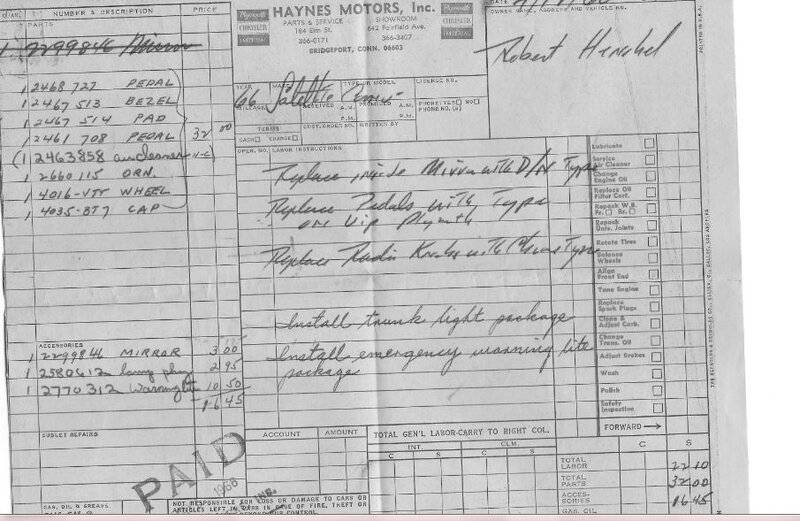 HAYNES MOTORS, Inc.
PARTS & SERVICE SHOWROOM
184 Elm St. 642 Fairfield Ave.
366-0171 366-3407
BRIDGEPORT, CONN. 06603
Plymouth
OWNER NAME, ADDRESS AND VEHICLE NO.
Robert Henshel
PRINTED IN U.S.A.
QUAN. NUMBER & DESCRIPTION PRICE
PARTS
1 2299846 Mirror
1 2468 727 PEDAL
1 2467 513 BEZEL
1 2467 514 PAD
1 2461 708 PEDAL 32 00
(1 2463858 N-C
1 2660115 ORN.
1 4016- WHEEL
1 4035- CAP
YEAR MAKE TYPE OR MODEL LICENSE NO.
66 Satellite
MILEAGE RECEIVED A.M. P.M. PROMISED A.M. P.M. PHONE YES NO
PHONE NO.
TERMS CUST. ORDER NO. WRITTEN BY
CASH CHARGE
OPER. NO. LABOR INSTRUCTIONS
Replace inside Mirror with D/N Type
Replace Pedals with Type
on Vip
Replace Radio Knobs with Type
Install trunk light package
Install emergency warning lite
package
Lubricate
Service Air Cleaner
Change Engine Oil
Replace Oil Filter Cart.
Repack W.B. Fr. Rr.
Repack Univ. Joints
Rotate Tires
Balance Wheels
Align Front End
Tune Engine
Replace Spark Plugs
Clean & Adjust Carb.
Change Trans. Oil
Adjust Brakes
Wash
Polish
Safety Inspection
FORWARD
ACCESSORIES
1 2299846 MIRROR 3 00
1 2580612 lamp pkg 2 95
1 2770312 10 50
16 45
SUBLET REPAIRS
PAID
1966
GAS, OIL & GREASE
ACCOUNT AMOUNT
TOTAL GEN'L LABOR-CARRY TO RIGHT COL.
INT. CLM.
C S C S
C S
TOTAL LABOR 22 10
TOTAL PARTS 32 00
ACCESSORIES 16 45
GAS, OIL
NOT RESPONSIBLE FOR LOSS OR DAMAGE TO CARS OR
ARTICLES LEFT IN CARS IN CASE OF FIRE, THEFT OR
BEYOND OUR CONTROL.